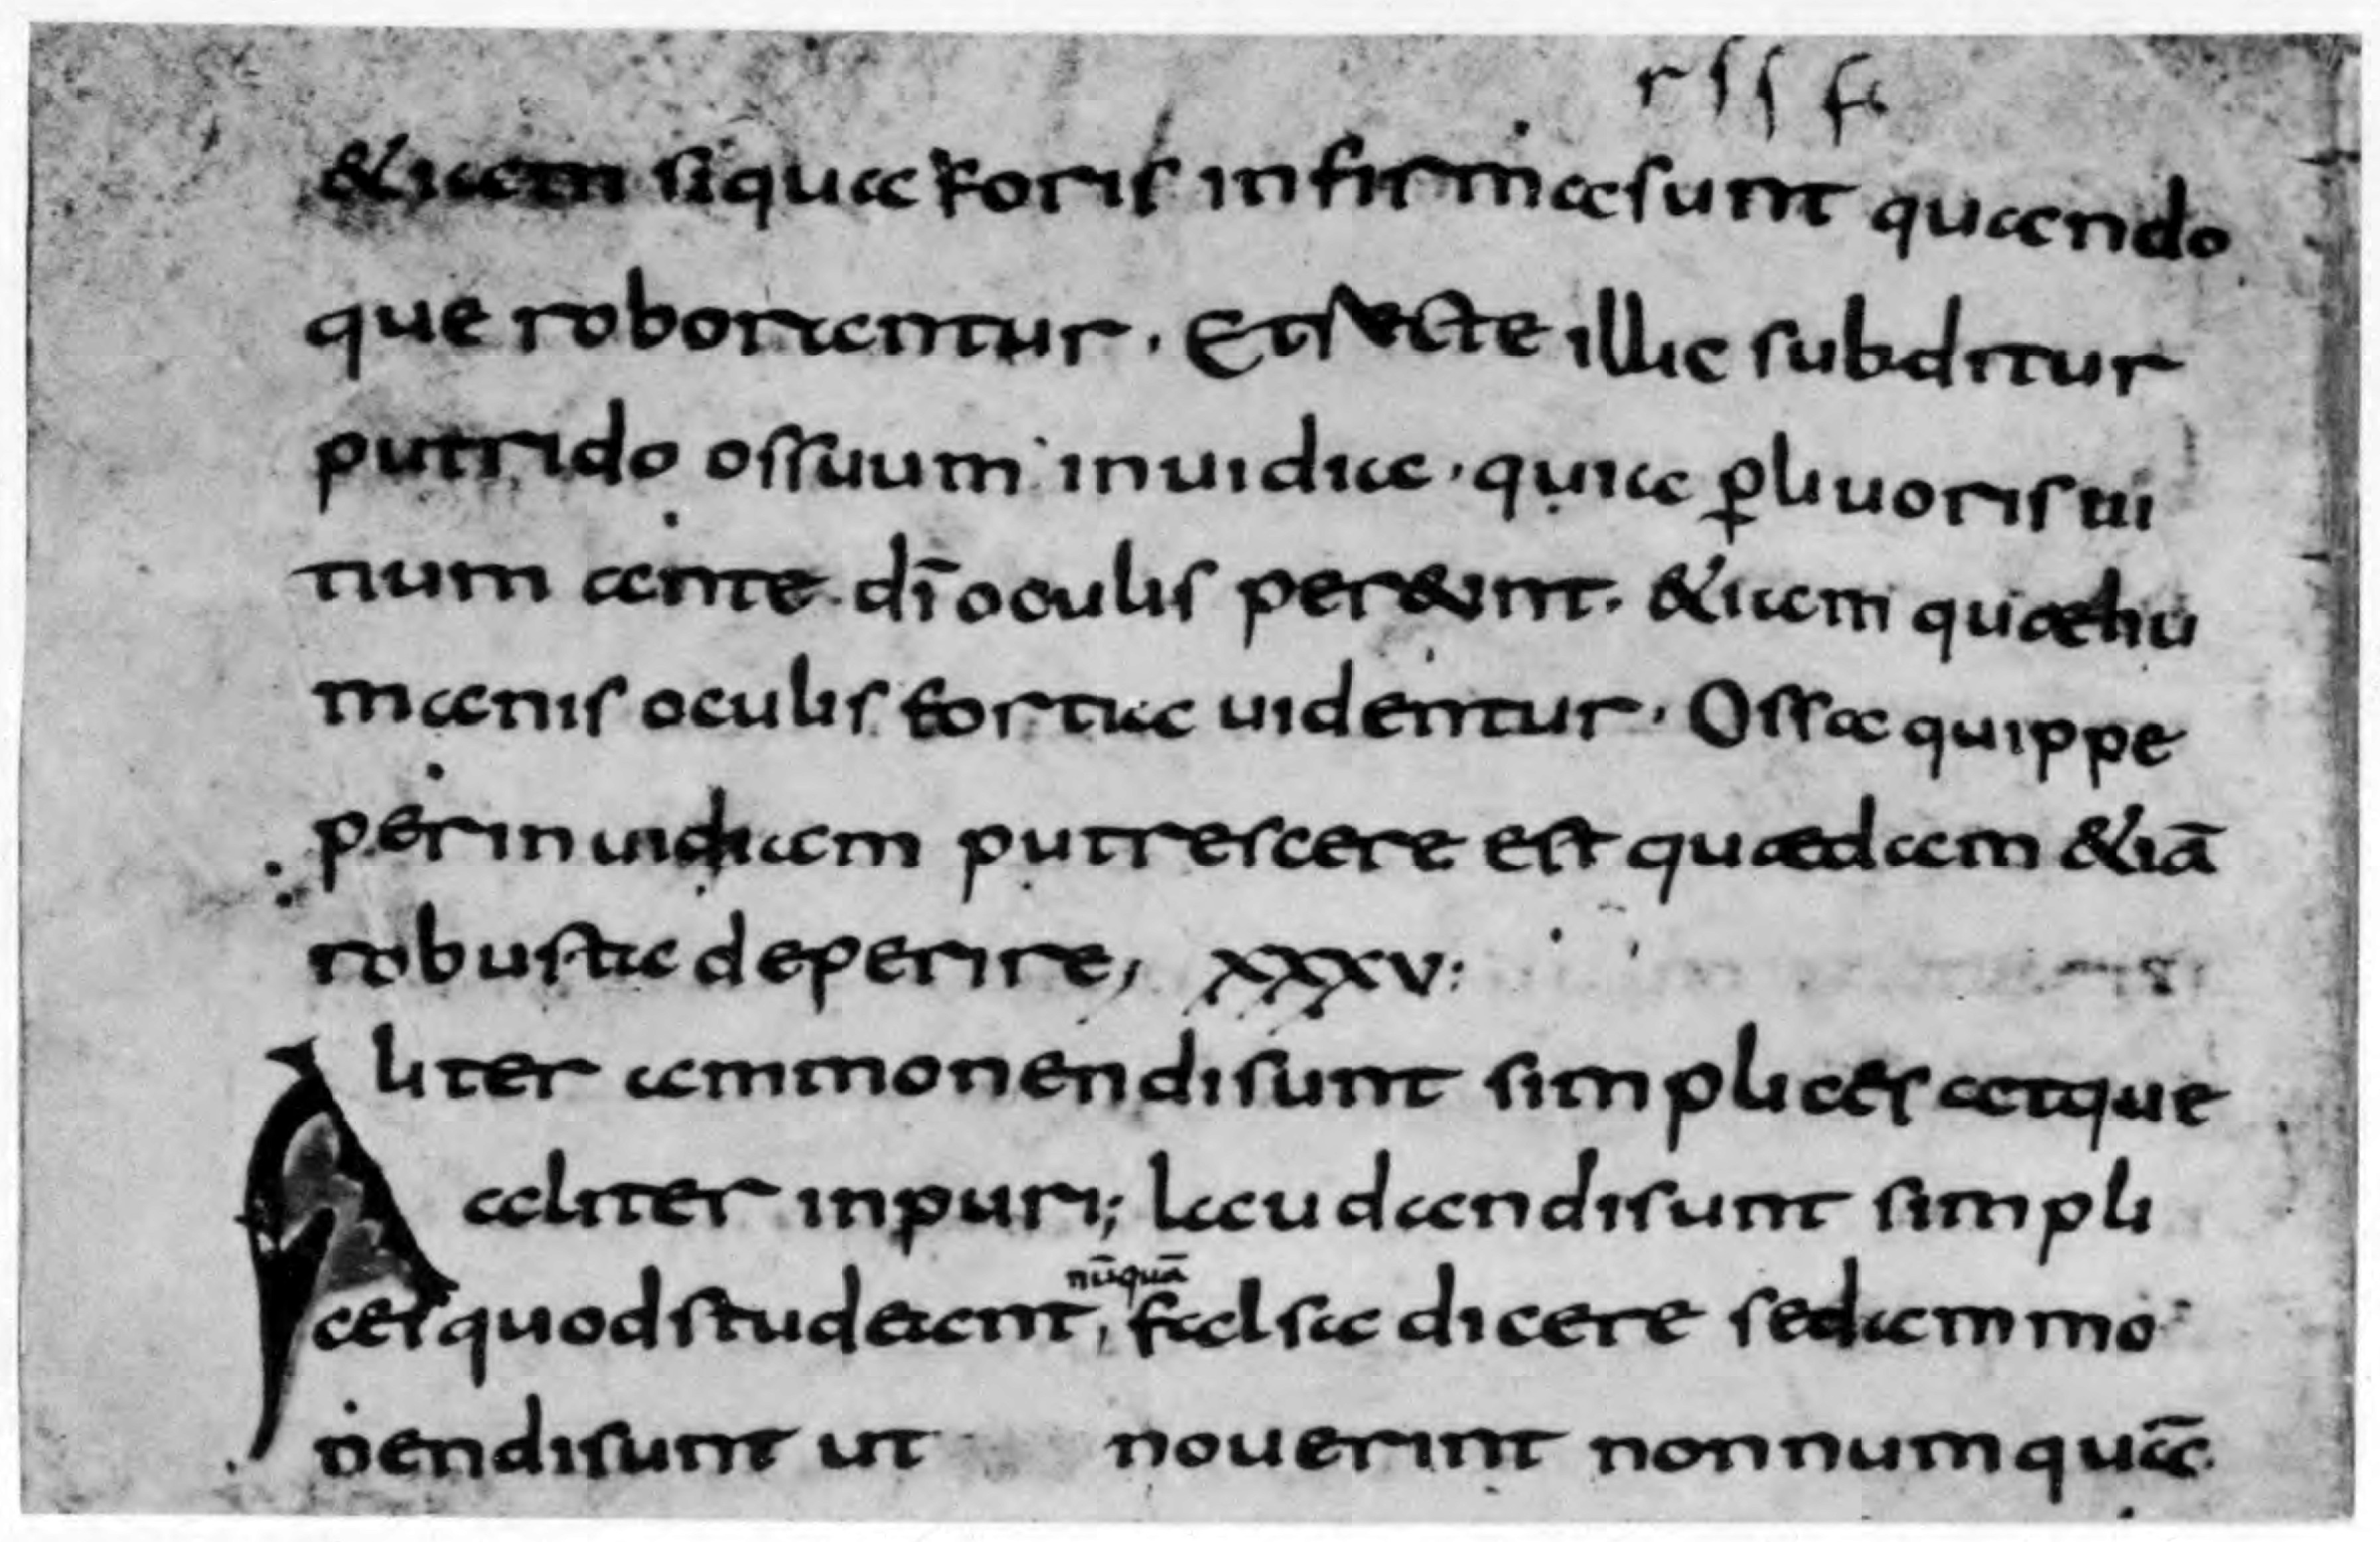 rſſ f
&iam si qua foris infirma sunt quando
que roborantur. Et recte illic subditur
putrido ossuum inuidia. quia ꝑ liuoris ui
tium ante dī oculis per&unt. &iam quae hu
manis oculis fortia uidentur. Ossa quippe
per inuidiam putrescere est quaedam &iā
robusta deperire, XXXV:
Aliter ammonendi sunt simplices atque
aliter inpuri; laudandi sunt simpli
nūquā
ces quod studeant, falsa dicere sed ammo
nendi sunt ut nouerint nonnumquā